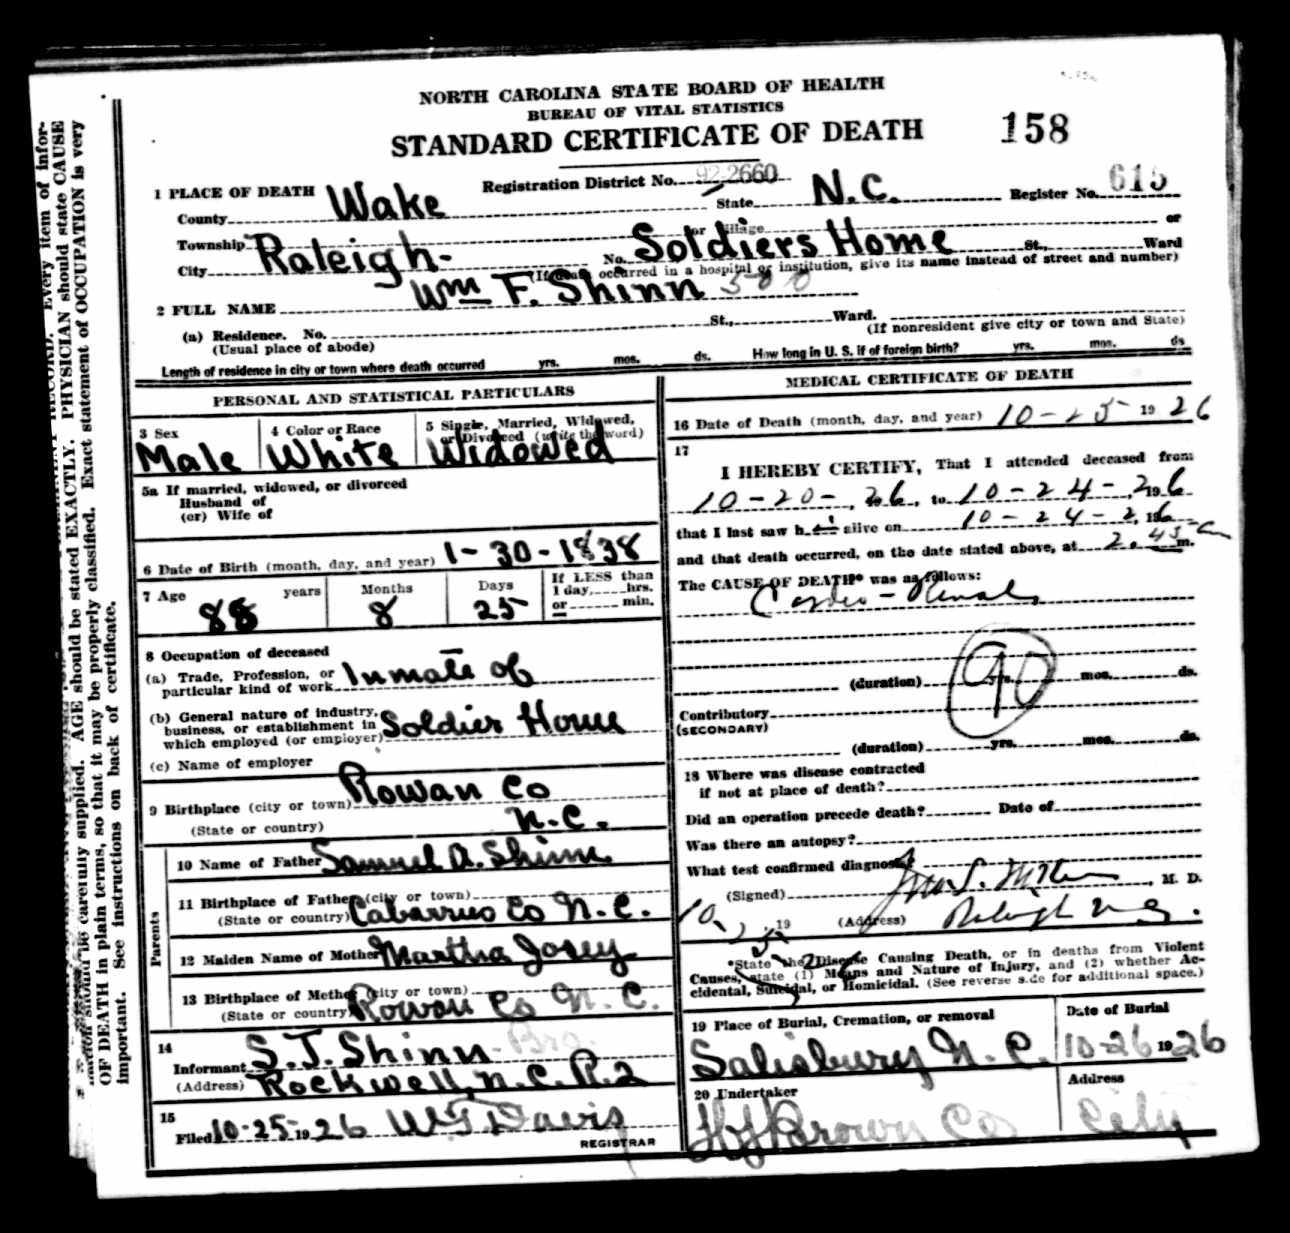 NORTH CAROLINA STATE BOARD OF HEALTH
BUREAU OF VITAL STATISTICS
STANDARD CERTIFICATE OF DEATH 158
1 PLACE OF DEATH Registration District No. 92-2660 Register No. 615
County Wake State N.C.
Township or Village or
City Raleigh- No. Soldiers Home St., Ward
(If death occurred in a hospital or institution, give its name instead of street and number)
2 FULL NAME Wm F. Shinn
(a) Residence. No. St., Ward.
(Usual place of abode) (If nonresident give city or town and State)
Length of residence in city or town where death occurred yrs. mos. ds. How long in U. S. if of foreign birth? yrs. mos. ds
PERSONAL AND STATISTICAL PARTICULARS
3 Sex
Male
4 Color or Race
White
5 Single, Married, Widowed,
or Divorced (write the word)
Widowed
5a If married, widowed, or divorced
Husband of
(or) Wife of
6 Date of Birth (month, day, and year) 1-30-1838
7 Age years Months Days If LESS than
1 day, hrs.
or min.
88 8 25
8 Occupation of deceased
(a) Trade, Profession, or
particular kind of work Inmate of
(b) General nature of industry,
business, or establishment in
which employed (or employer) Soldier Home
(c) Name of employer
9 Birthplace (city or town) Rowan Co
(State or country) N.C.
Parents
10 Name of Father Samuel A. Shinn
11 Birthplace of Father (city or town)
(State or country) Cabarrus Co N.C.
12 Maiden Name of Mother Martha Josey
13 Birthplace of Mother (city or town)
(State or country) Rowan Co N.C.
14
Informant S.J. Shinn- Bro.
(Address) Rockwell, N.C. R.2
15
Filed 10-25-1926 W T Davis
REGISTRAR
MEDICAL CERTIFICATE OF DEATH
16 Date of Death (month, day, and year) 10-25- 1926
17
I HEREBY CERTIFY, That I attended deceased from
10-20-, 26, to 10-24-, 1926
that I last saw h alive on 10-24-2, 196
and that death occurred, on the date stated above, at 2.45 a m.
The CAUSE OF DEATH* was as follows:
Cardio-Renal
(duration) yrs. mos. ds.
90
Contributory
(SECONDARY)
(duration) yrs. mos. ds.
18 Where was disease contracted
if not at place of death?
Did an operation precede death? Date of
Was there an autopsy?
What test confirmed diagnosis?
(Signed) , M. D.
10, 25, 19 26 (Address) Raleigh N.C.
*State the Disease Causing Death, or in deaths from Violent
Causes, state (1) Means and Nature of Injury, and (2) whether Ac-
cidental, Suicidal, or Homicidal. (See reverse side for additional space.)
19 Place of Burial, Cremation, or removal
Salisbury N.C.
Date of Burial
10-26 1926
20 Undertaker
H J Brown Co
Address
City
RECORD. Every item of infor-
mation should be carefully supplied. AGE should be stated EXACTLY. PHYSICIAN should state CAUSE
OF DEATH in plain terms, so that it may be properly classified. Exact statement of OCCUPATION is very
important. See instructions on back of certificate.